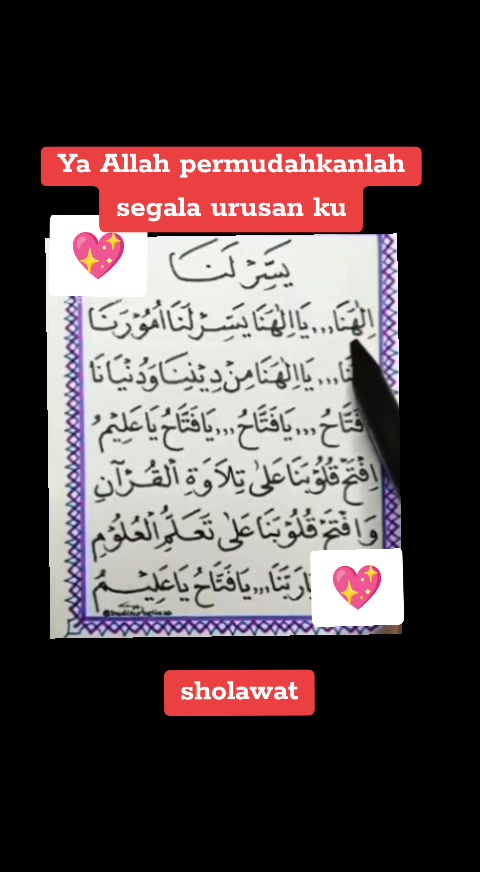 Ya Allah permudahkanlah
segala urusan ku
يَسِّرْ لَنَا
اِلٰهَنَا،،، يَااِلٰهَنَا يَسِّرْ لَنَا اُمُوْرَنَا
يَااِلٰهَنَا مِنْ دِيْنِنَا وَدُنْيَانَا
يَافَتَّاحُ،،، يَافَتَّاحُ يَا عَلِيْمُ
اِفْتَحْ قُلُوْبَنَا عَلٰى تِلاَوَةِ الْقُرْآنِ
وَافْتَحْ قُلُوْبَنَا عَلٰى تَعَلُّمِ الْعُلُوْمِ
يَافَتَّاحُ يَاعَلِيْمُ
sholawat